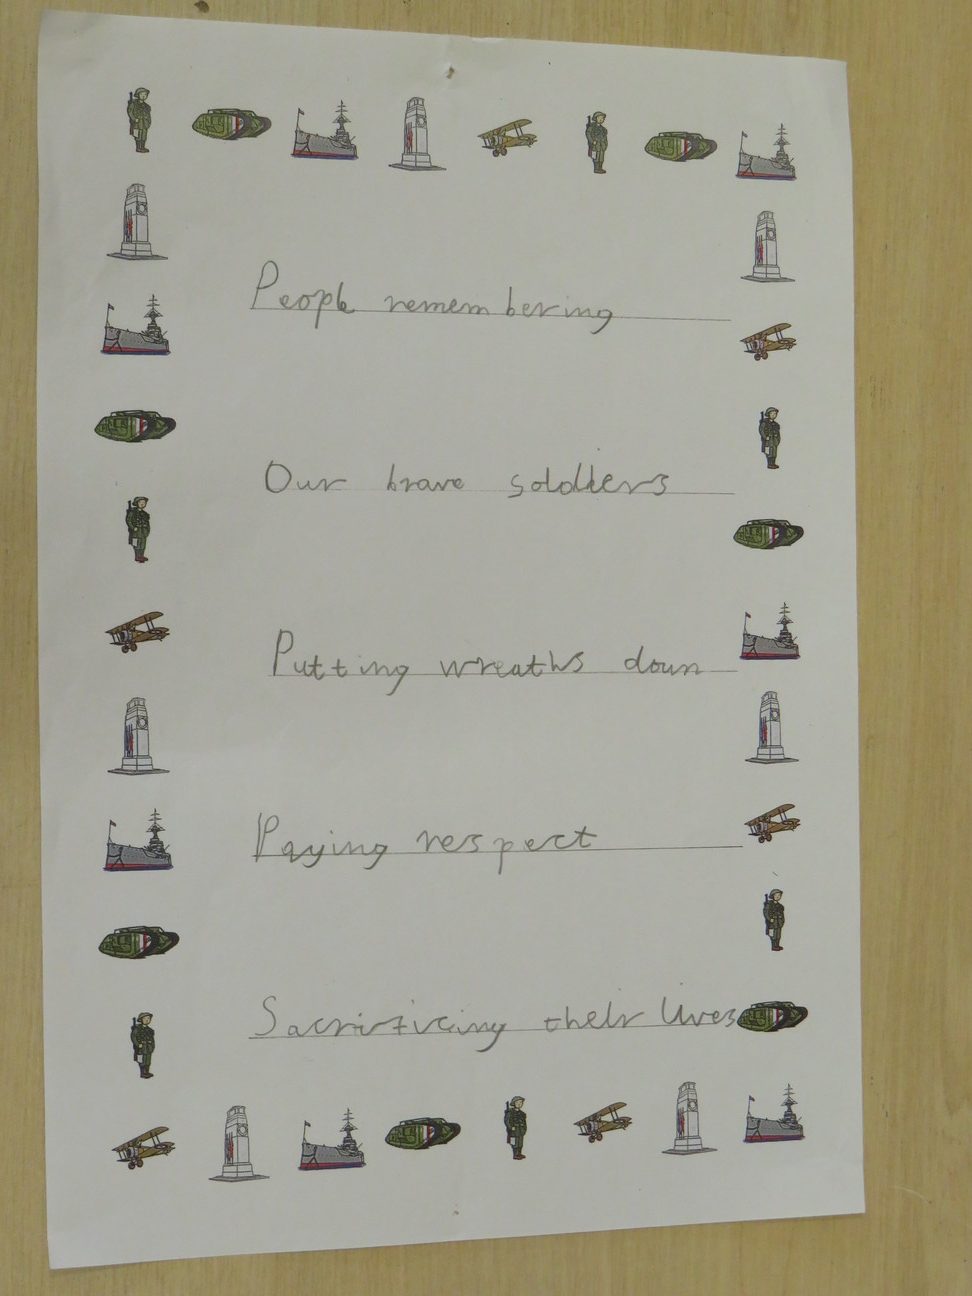 People remembering
Our brave soldiers
Putting wreaths down
Paying respect
Sacrificing their lives